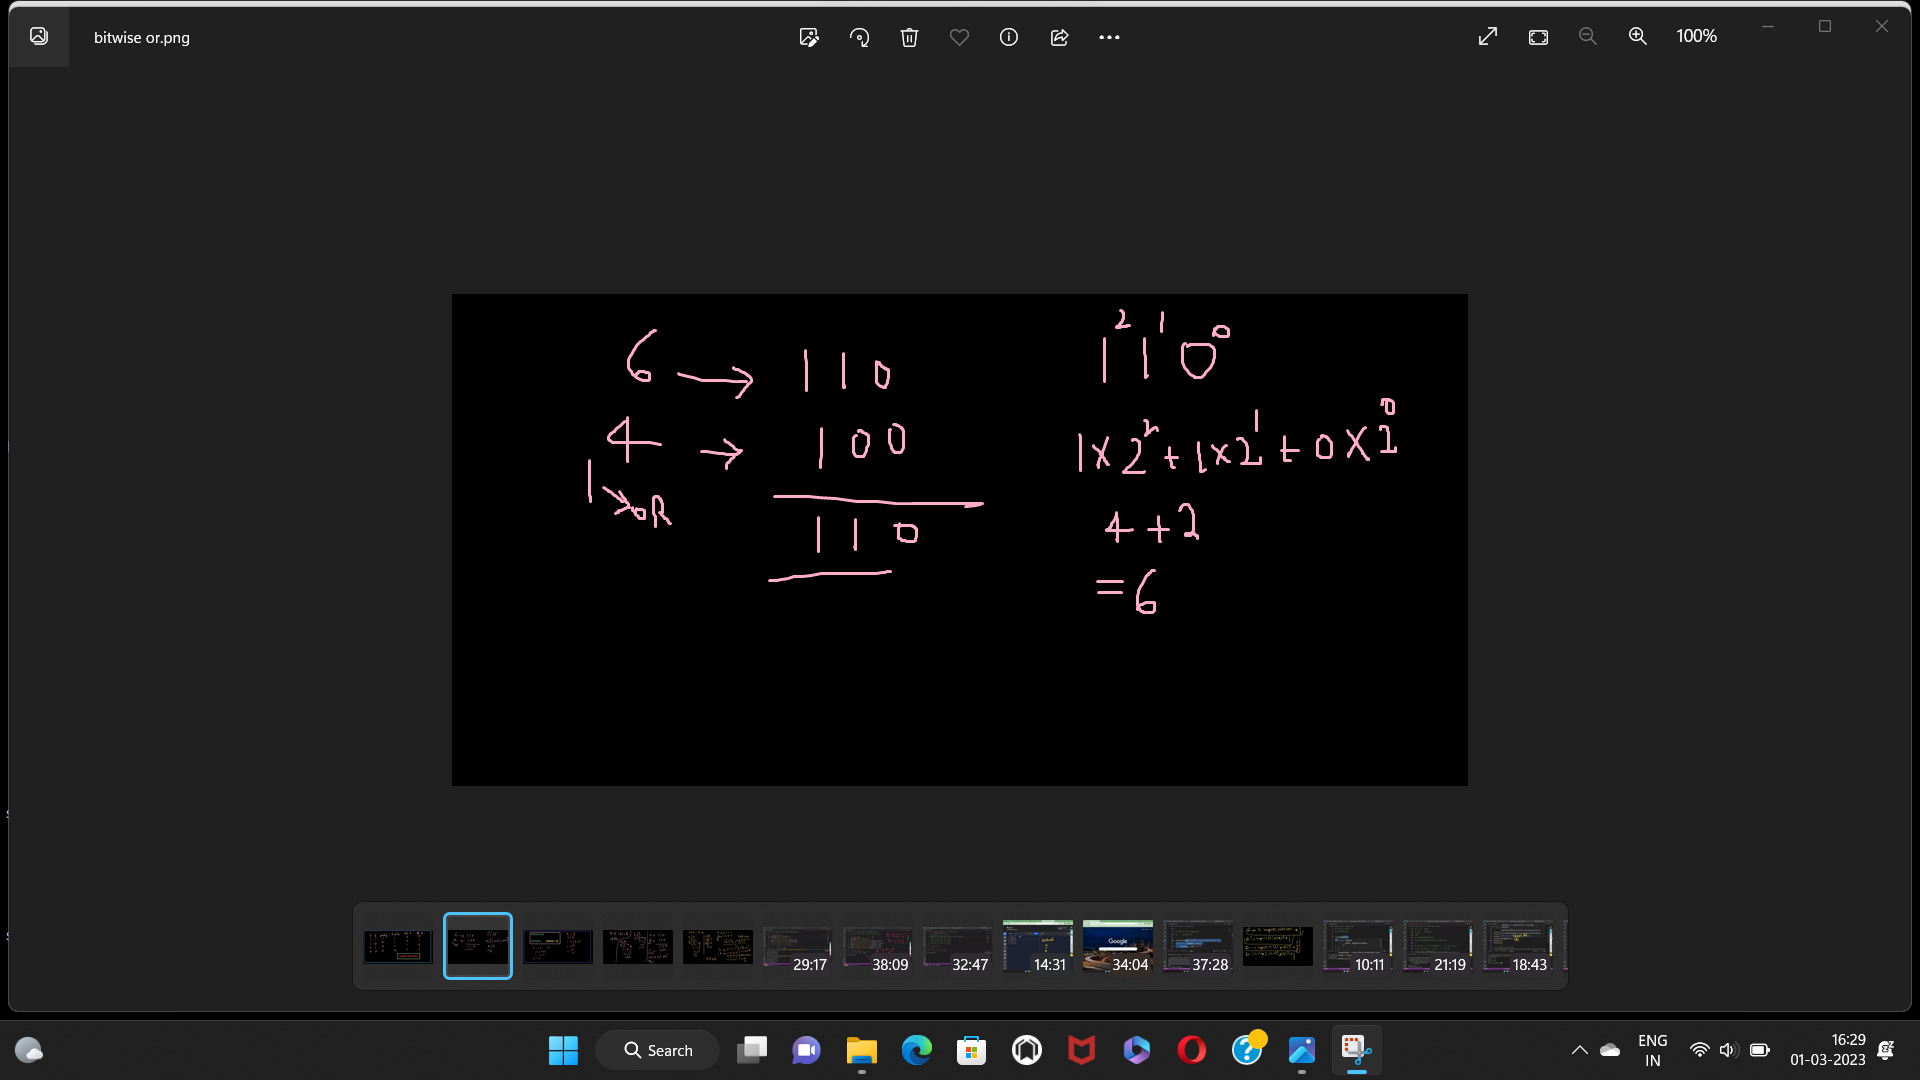 bitwise or.png
100%
6 → 110
4 → 100
| → OR
110
1²1¹0⁰
1×2² + 1×2¹ + 0×2⁰
4+2
=6
29:17
38:09
32:47
14:31
Google
34:04
37:28
10:11
21:19
18:43
Search
ENG
IN
16:29
01-03-2023